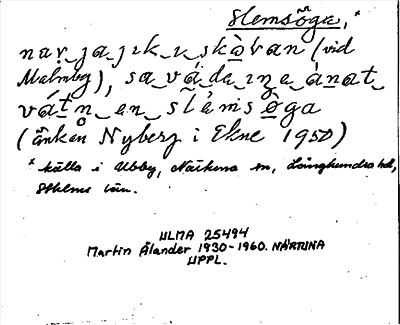 Slemsöga,*
nar jajikı skövan (vid
Malmby), sa váda ıŋa ànat
vátn en slèmsöga
(änkan Nyberg i Ekne 1950)
* källa i Ubby, Närtuna sn, Långhundra hd,
Sthlms län.
ULMA 25494
Martin Ålander 1930-1960. NÄRTUNA
UPPL.